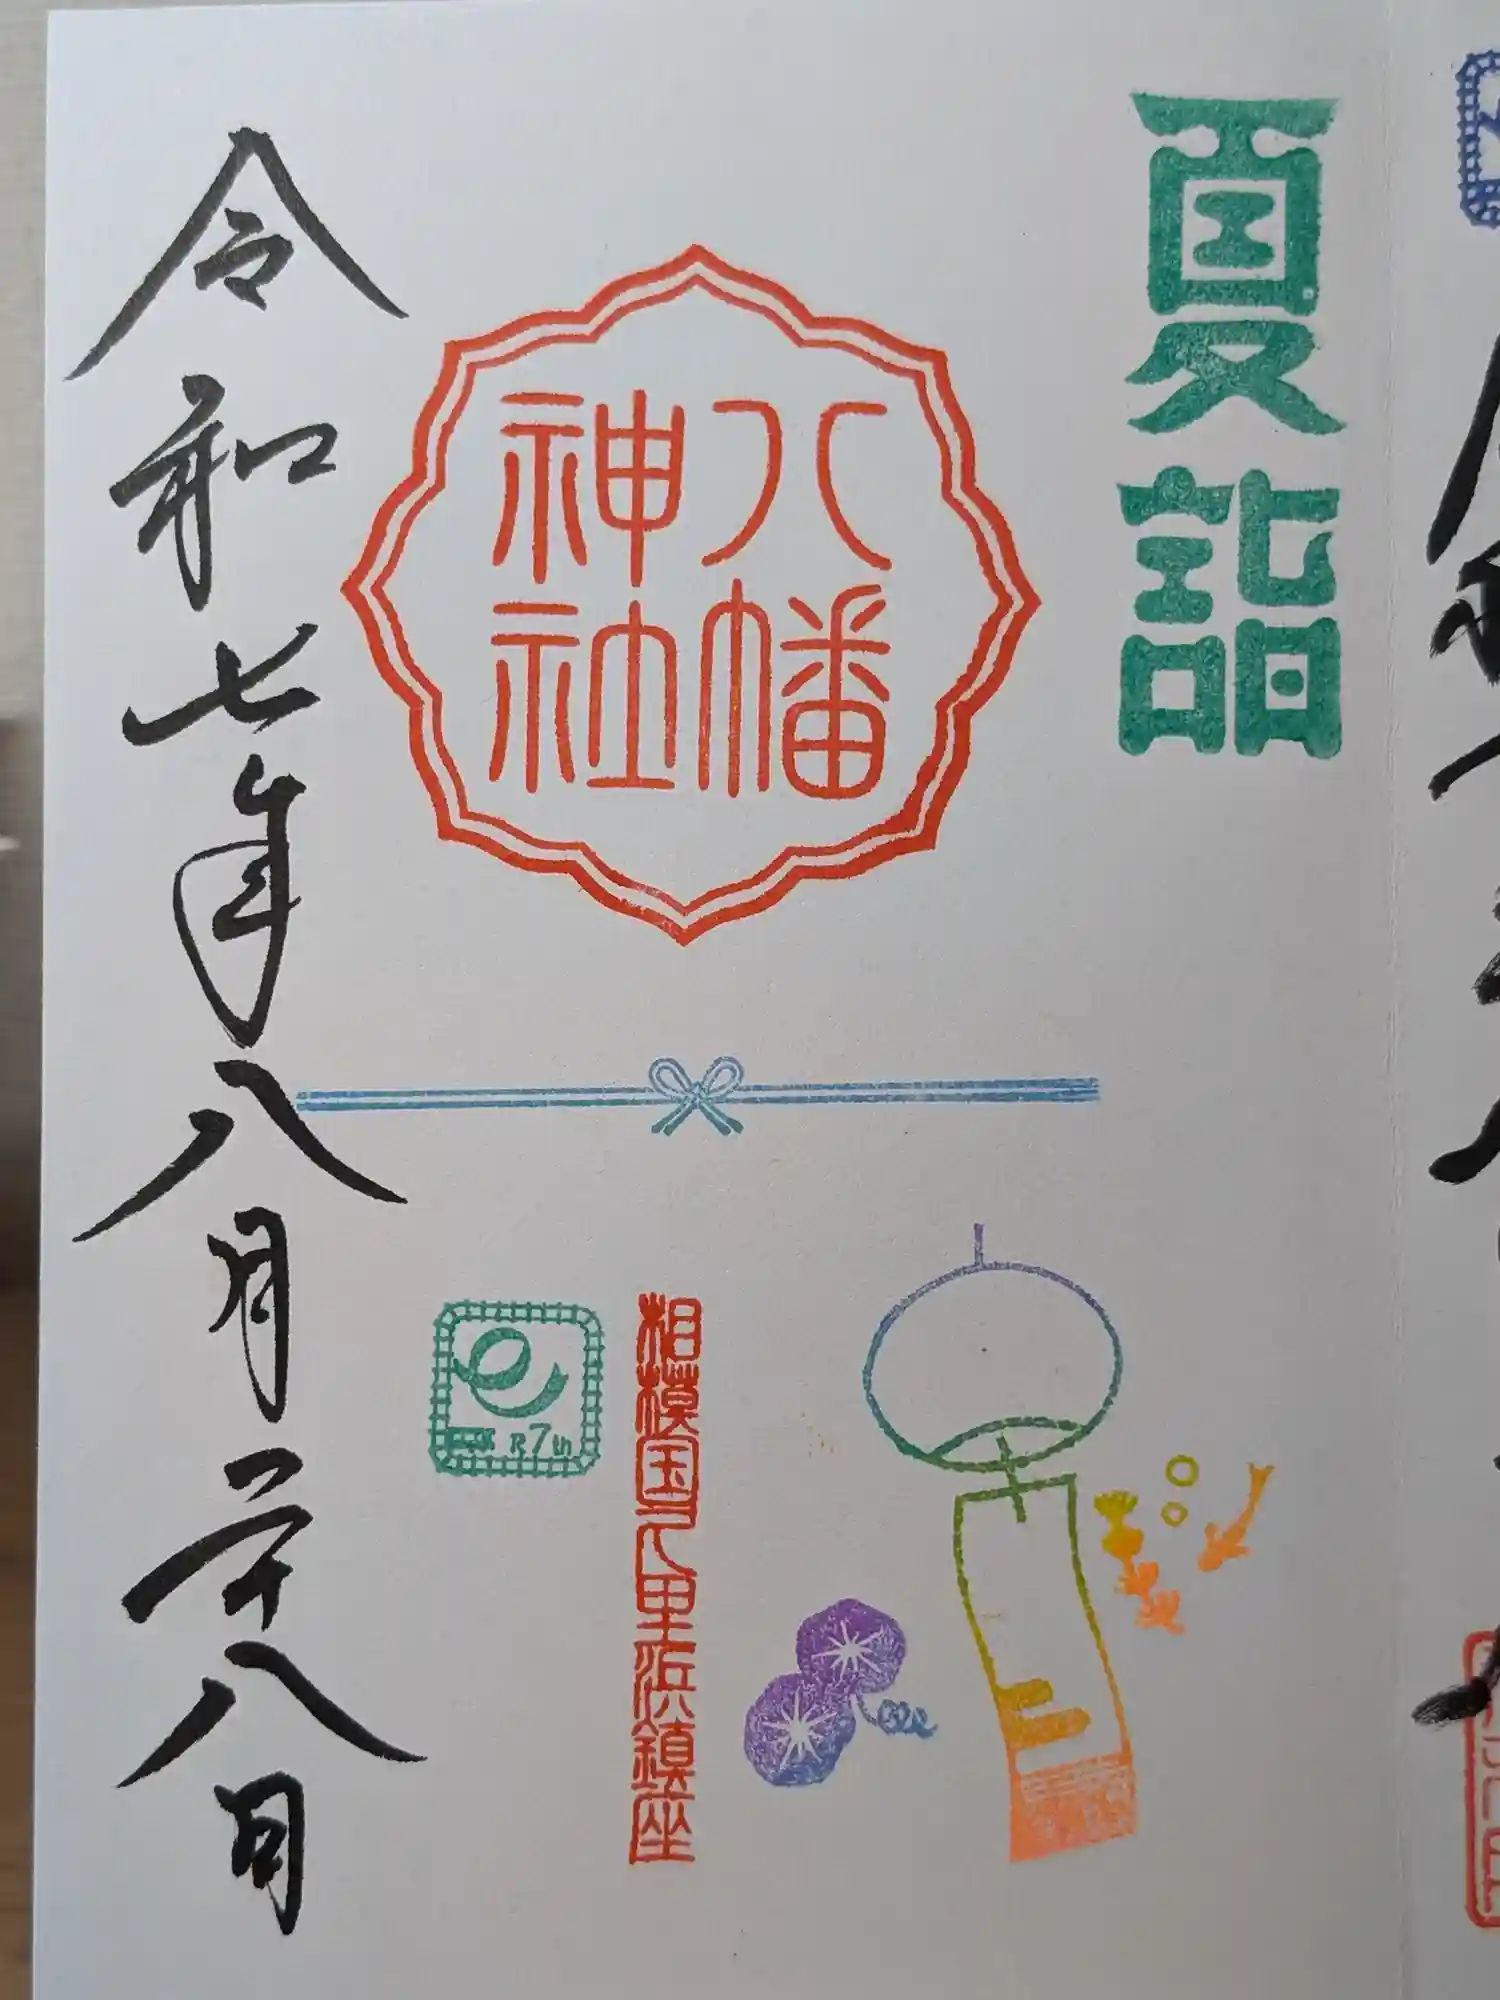 夏詣
八幡
神社
相模国久里浜鎮座
R7th
令和七年八月二十八日